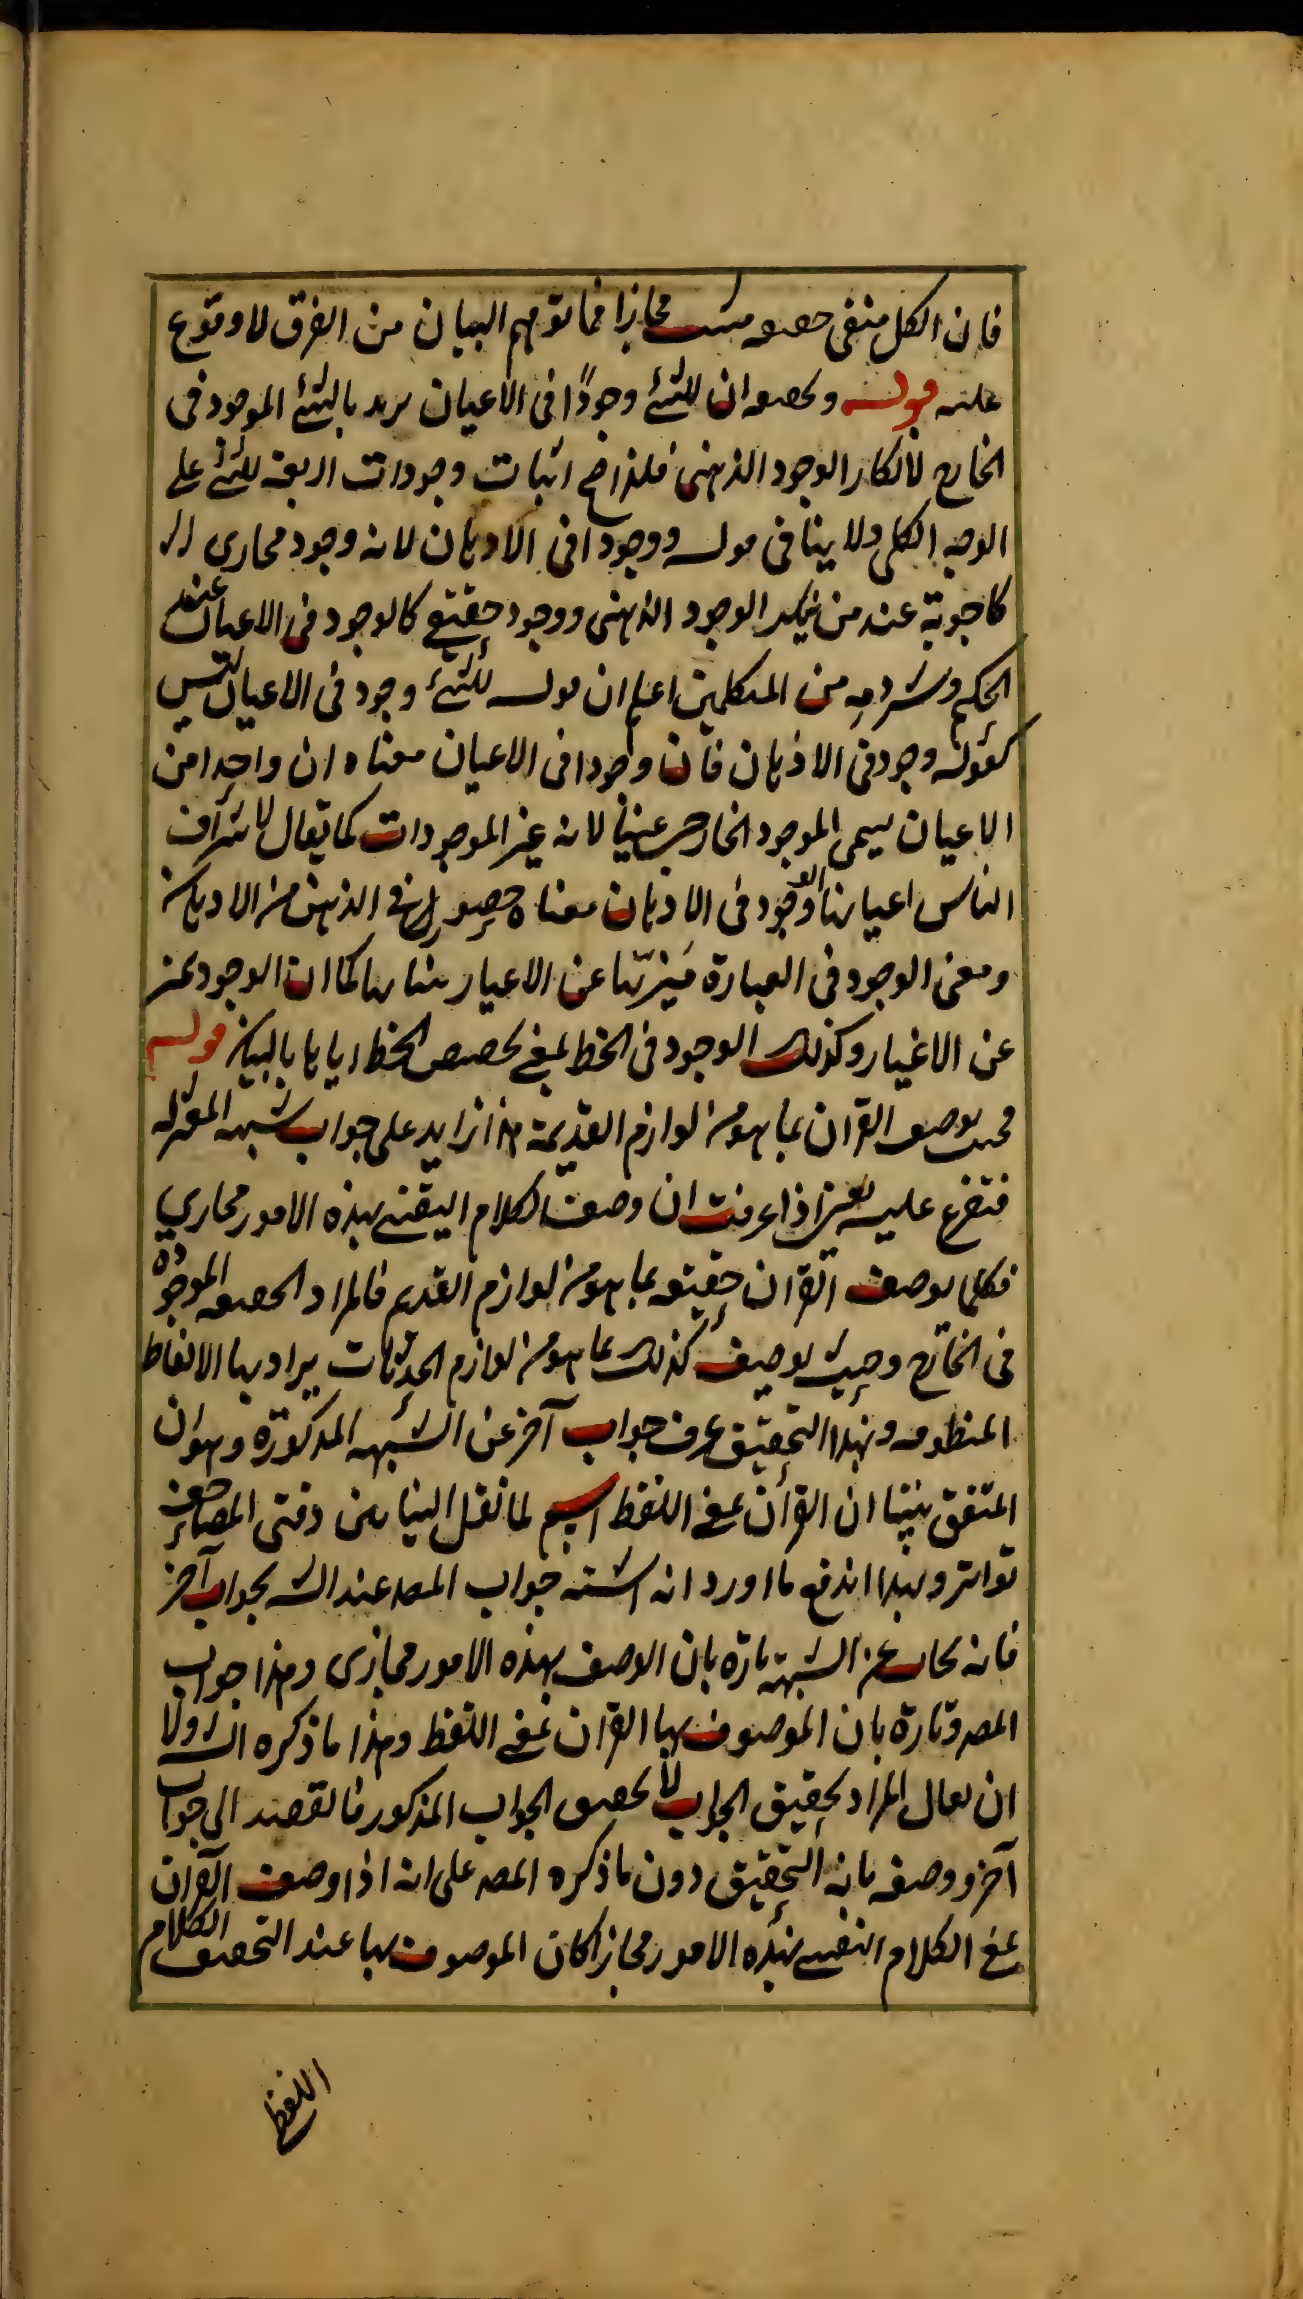 فان الكل منفى حقيقه مثبت مجازا فما توهم البيان من الفرق لا وقوع
عليه قوله وتحقيقه ان للشئ وجودًا فى الاعيان يريد بالشئ الموجود فى
الخارج لانكار الوجود الذهنى فلذا صح اثبات وجودات اربعة للشئ على
الوجه الكلى ولا ينافى قوله ووجودا فى الاذهان لانه وجود مجازى
كاجوبة عند من ينكر الوجود الذهنى ووجود حقيقى كالوجود فى الاعيان عند
الحكم وشرذمه من المتكلمين اعلم ان قوله للشئ وجود فى الاعيان ليس
كقوله وجود فى الاذهان فان وجودا فى الاعيان معناه ان واحدا من
الاعيان يسمى الموجود الخارجى عينيا لانه عين الموجودات كما يقال لاشراف
الناس اعيانها والوجود فى الاذهان معناه حصوله فى الذهن من الاذهان
ومعنى الوجود فى العبارة تميزها عن الاغيار بها كما ان الوجود تميز
عن الاغيار وكذلك الوجود فى الخط بمعنى تخصيص الخط اياها بالبيان قوله
فحيث يوصف القران بما هو من لوازم القديمة هذا زايد على جواب شبهه المعتزله
فتفرع عليه يعنى اذا عرفت ان وصف الكلام النفسى بهذه الامور مجازي
فكلما يوصف القران حقيقه بما هو من لوازم القديم فالمراد الحقيقه الموجوده
فى الخارج وحيث يوصف كذلك بما هو من لوازم المحدثات يراد بها الالفاظ
المنظومه وبهذا التحقيق عرف جواب آخر عن الشبهه المذكورة وهو ان
المتفق بيننا ان القرأن بمعنى اللفظ اسم لما نقل الينا بين دفتى المصاحف
تواتر وبهذا اندفع ما اورد انه اشتبه جواب المصه عند الشه بجواب آخر
فانه يجاب عن الشبهة تارة بان الوصف بهذه الامور مجازى وهذا جواب
المصه وتارة بان الموصوف بها القران بمعنى اللفظ وهذا ما ذكره الشه ولا
ان يقال المراد تحقيق الجواب لا تحقيق الجواب المذكور فالقصد الى جواب
آخر ووصفه بانه التحقيق دون ما ذكره المصه على انه اذا وصف القرآن
بمعنى الكلام النفسى بهذه الامور مجازا كان الموصوف بها عند التحقيق الكلام
اللفظى